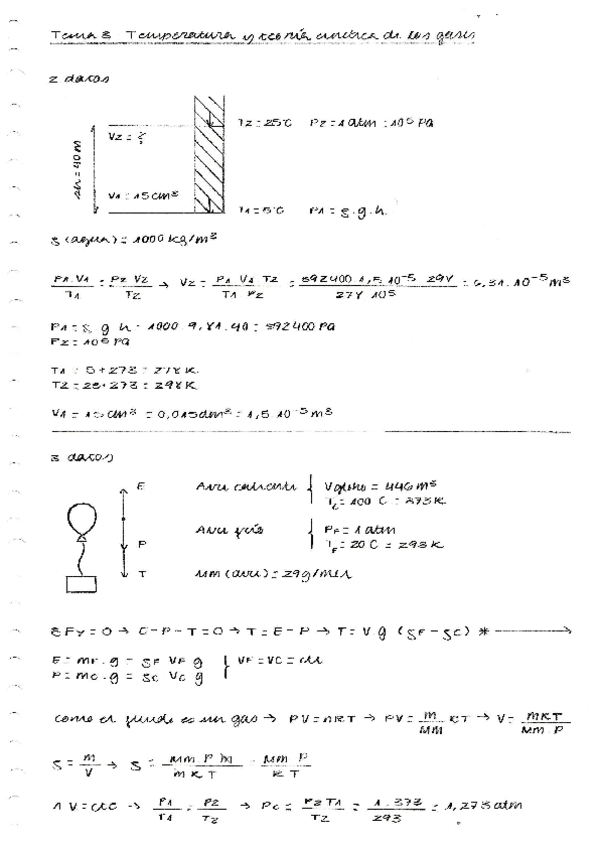 Tema 8 Temperatura y teoría cinética de los gases
2 datos
T2 = 25°C P2 = 1 atm = 10⁵ Pa
V2 = ?
Δh = 40 m
V1 = 15 cm³
T1 = 5°C P1 = ρ.g.h.
ρ (agua) = 1000 kg/m³
P1.V1/T1 = P2 V2/T2 → V2 = P1 V1 T2/T1 P2 = 392400 1,5.10⁻⁵ 298/278 10⁵ = 6,31.10⁻⁵ m³
P1 = ρ g h = 1000.9,81.40 = 392400 Pa
P2 = 10⁵ Pa
T1 = 5+273 = 278 K
T2 = 25+273 = 298 K
V1 = 15 cm³ = 0,015 dm³ = 1,5.10⁻⁵ m³
3 datos
E
Aire caliente { Vglobo = 446 m³
Tc = 100 C = 373 K
Aire frío { PF = 1 atm
TF = 20 C = 293 K
P
T MM (aire) = 29 g/mol
ΣFy = 0 → E-P-T=0 → T = E-P → T = V g (ρF - ρC) *
E = mF.g = ρF VF g } VF = VC = cte
P = mC.g = ρC VC g
como el fluido es un gas → PV = nRT → PV = m/MM RT → V = mRT/MM P
ρ = m/V → ρ = MM P m/m R T = MM P/R T
A V = cte → P1/T1 = P2/T2 → PC = P2 T1/T2 = 1.373/293 = 1,273 atm